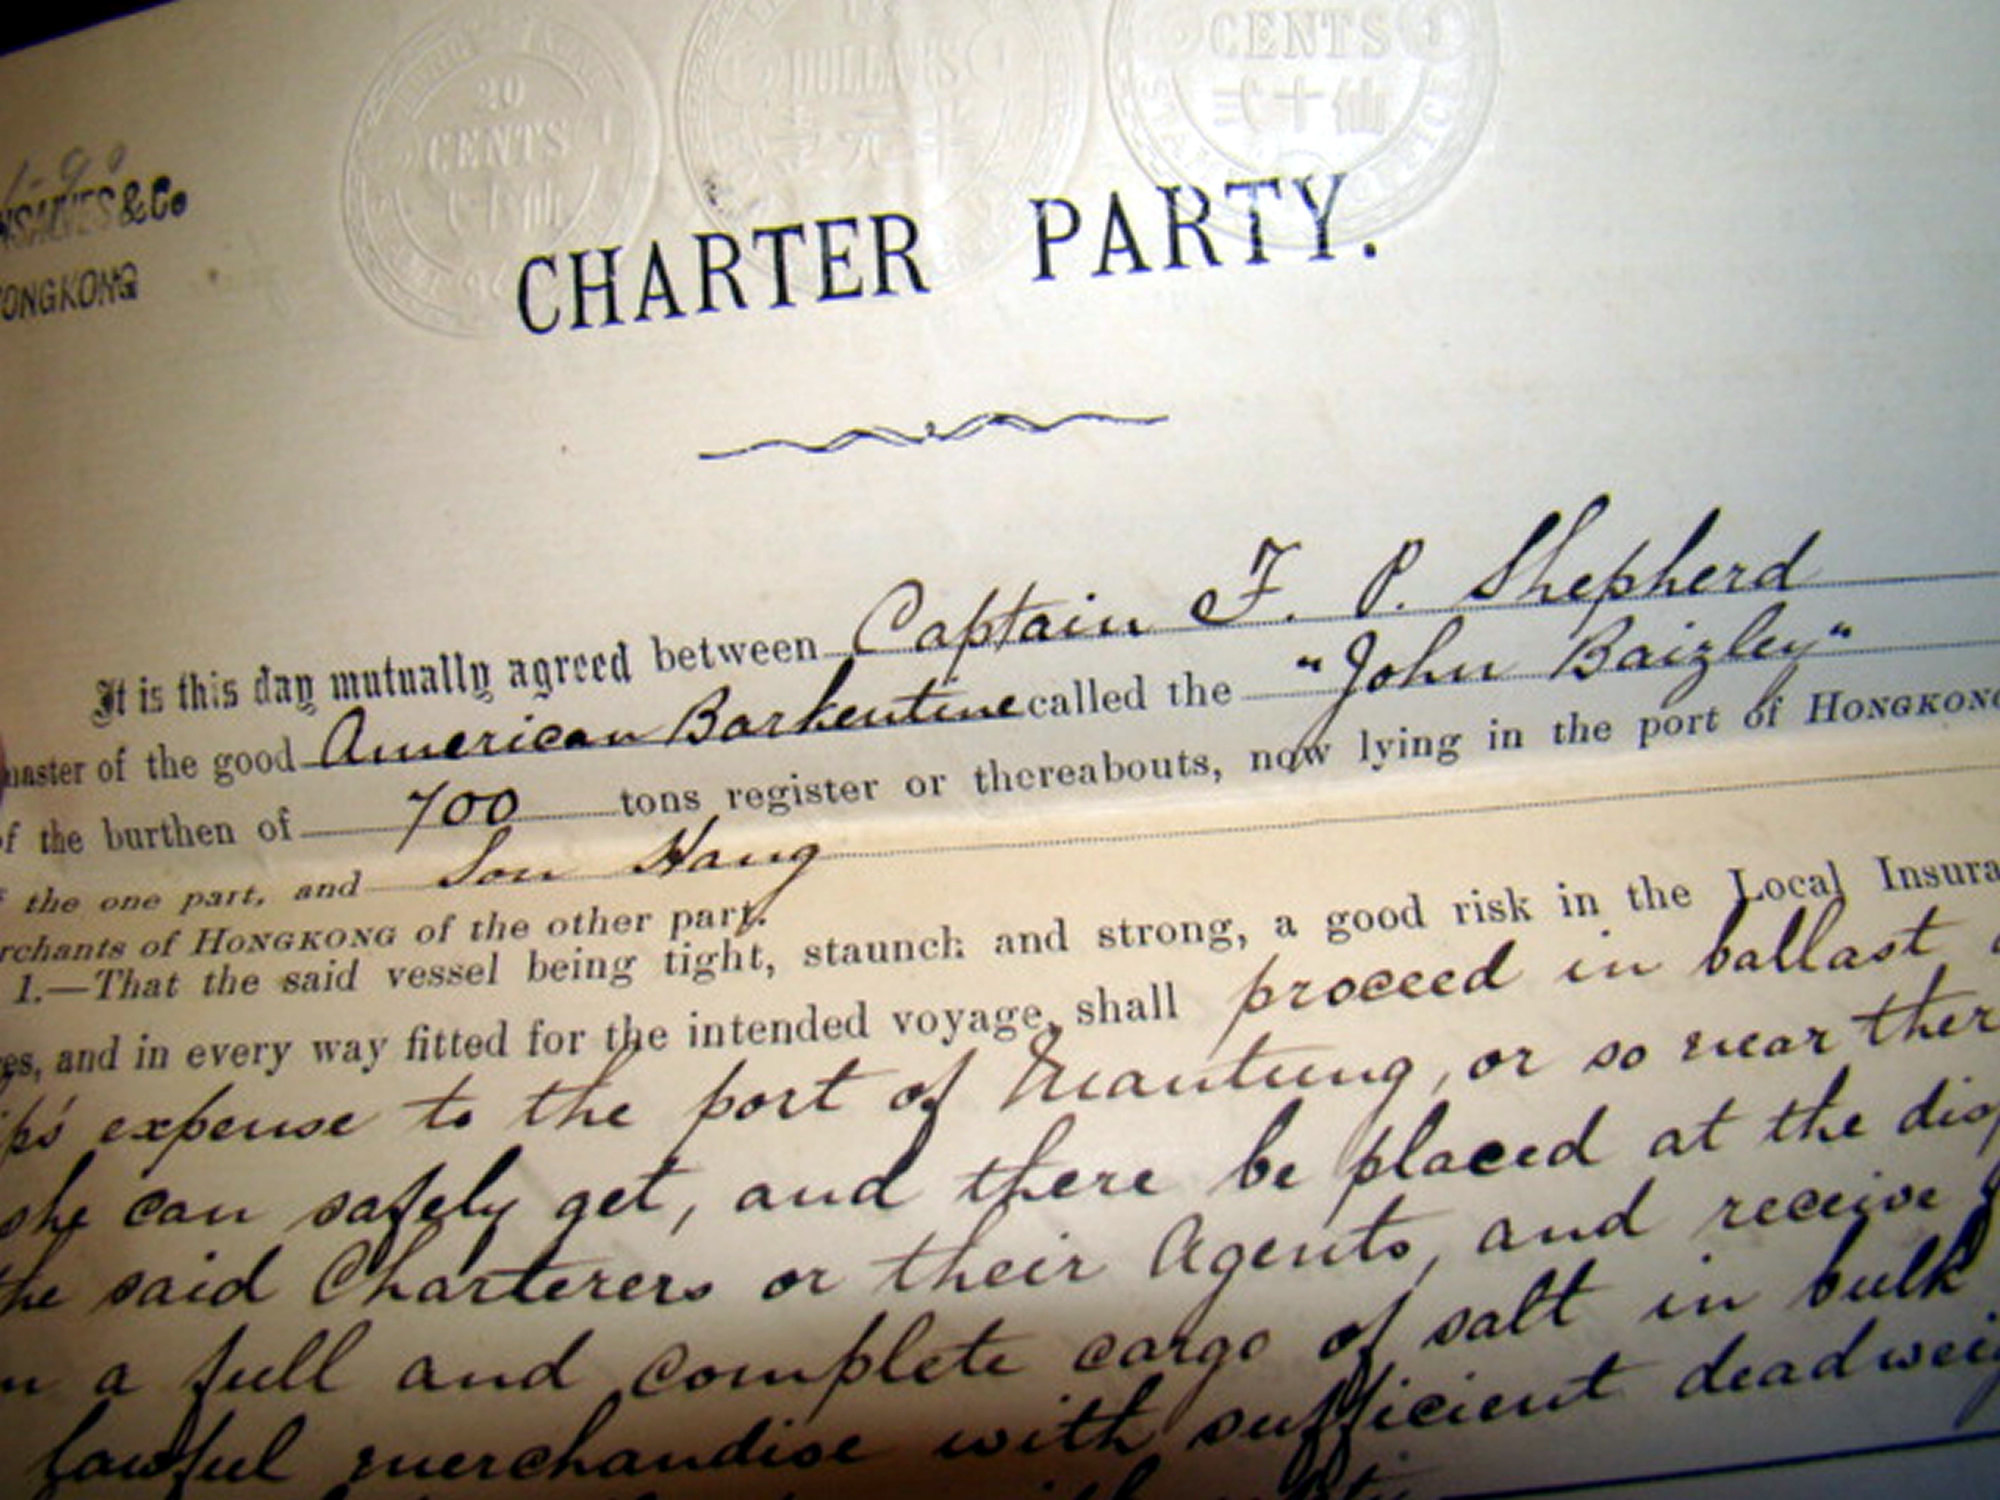 20
CENTS
DOLLARS
壹元半
CENTS
贰十仙
&Co
ONGKONG
CHARTER PARTY.
It is this day mutually agreed between Captain F. P. Shepherd
master of the good American Barkentine called the "John Baizley"
of the burthen of 700 tons register or thereabouts, now lying in the port of HONGKONG
the one part, and Son Hang
rchants of HONGKONG of the other part.
1.—That the said vessel being tight, staunch and strong, a good risk in the Local Insura
es, and in every way fitted for the intended voyage, shall proceed in ballast
expense to the port of Nuantung, or so near ther
she can safely get, and there be placed at the disp
the said Charterers or their Agents, and receive
a full and complete cargo of salt in bulk
lawful merchandise with sufficient deadwei